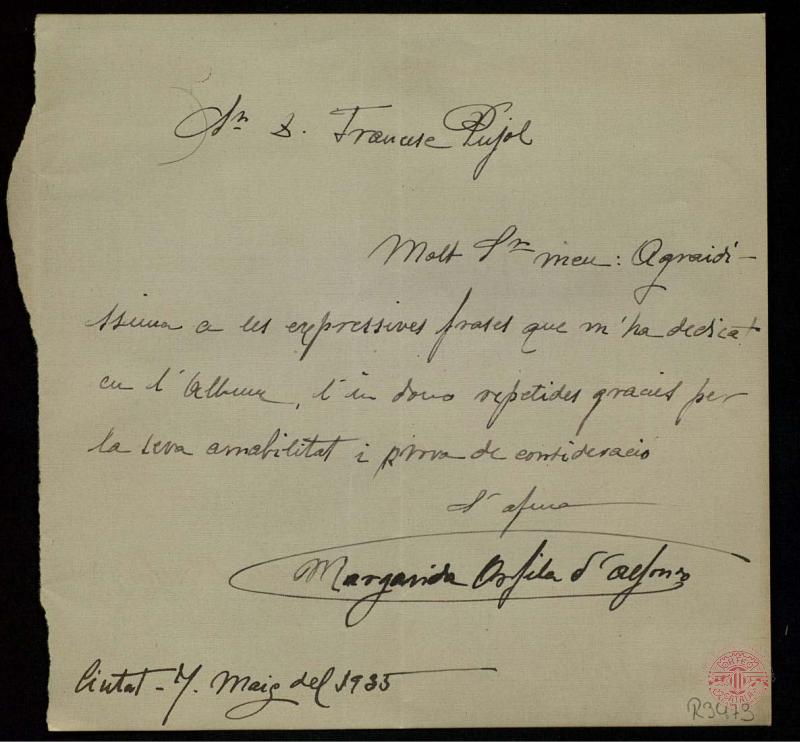 Sr. D. Francesc Pujol
Molt Sr meu: Agraidí-
ssima a les expressives frases que m'ha dedicat
en l'Album, l'in dono repetides gracies per
la seva amabilitat i prova de consideració
S'afma
Margarida Orfila d'Alfonso
Ciutat - 7. Maig del 1935
ORFEÓ
CATALÀ
R3473